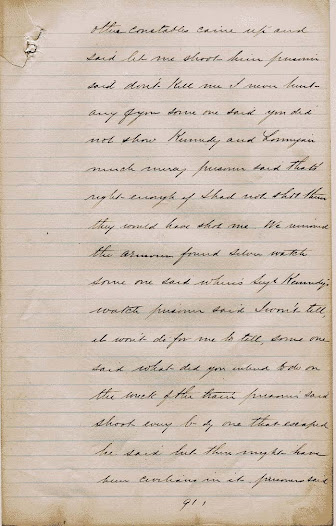 other constables came up and
said let me shoot him prisoner
said don't kill me I never hurt
any of you some one said you did
not show Kennedy and Lonnigan
much mercy prisoner said that's
right enough if I had not shot them
they would have shot me. We removed
the armour found silver watch
some one said where's Sergt Kennedy's
watch prisoner said I won't tell,
it won't do for me to tell, some one
said what did you intend to do on
the wreck of the train prisoner said
shoot every body one that escaped
he said but there might have
been civilians in it prisoner said